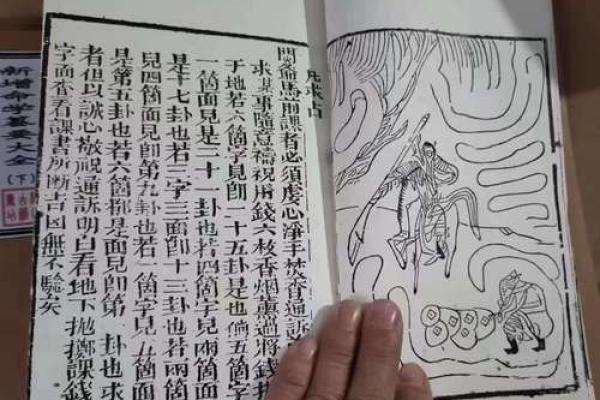 凡求占
馬前課者必須虔心淨手焚香通訴
求某事隨意禱祝用錢六枚香烟薰過將錢
于地若六箇字見卽二十五卦是也倘五箇字
一箇面見是二十一卦也若四箇字見兩箇面
是十七卦也若三字三面卽十三卦也若兩箇
見四箇面見卽第九卦也若一箇字見五箇面
是第五卦也若六箇都是面見卽第 卦也求
者但以誠心禱祝通訴明白看地下拋擲課錢
字面查看課書所斷吉凶無不驗矣
新增命学纂要大全
（下）